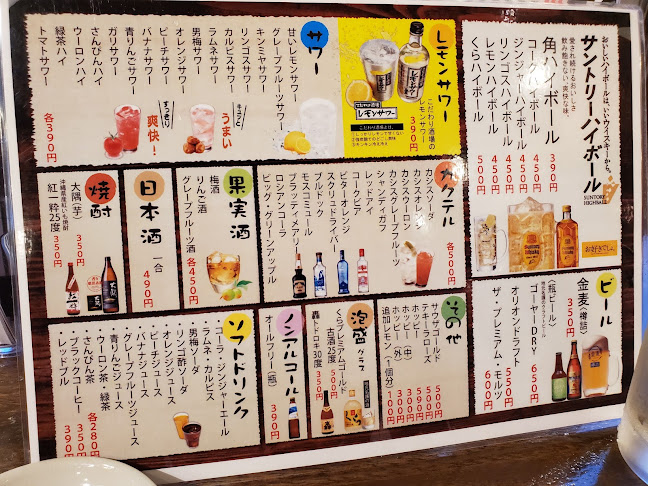 おいしいハイボールは、いいウイスキーから。
愛され続けるおいしさ
飲み飽きない爽快な味。
サントリーハイボール
SUNTORY
HIGHBALL
角ハイボール 390円
コーラハイボール 450円
ジンジャーハイボール 450円
リンゴスハイボール 450円
レモンハイボール 450円
くらハイボール 500円
お好きでしょ。
ビール
金麦〈樽詰〉
350円
〈瓶ビール〉
ゴーヤーDRY 650円
オリオンドラフト 600円
ザ・プレミアム・モルツ 600円
レモンサワー
こだわり酒場の
レモンサワー
こだわり酒場の
レモンサワー
サワー
甘いレモンサワー
グレープフルーツサワー
キンミヤサワー
リンゴスサワー
カルピスサワー
ラムネサワー
男梅サワー
オレンジサワー
ピーチサワー
バナナサワー
青りんごサワー
ガリサワー
さんぴんハイ
ウーロンハイ
緑茶ハイ
トマトサワー
各390円
キュッと
うまい
すっきり
爽快！
カクテル
カシスソーダ
カシスオレンジ
カシスウーロン
カシスグレープフルーツ
シャンディガフ
レッドアイ
コークビア
ビターオレンジ
スクリュードライバー
ブルドック
モスコミュール
ブラッディメアリー
ロシアンコーラ
ビッグ・グリーンアップル
各500円
果実酒
梅酒
りんご酒
グレープフルーツ酒
各450円
日本酒
一合
490円
焼酎
大隅〈芋〉 350円
沖縄県産紅いも焼酎
紅一粋25度 350円
その他
サウザゴールド 500円
テキーラローズ 500円
ホッピー 390円
ホッピー（中） 300円
ホッピー（外）
追加レモン（1個分） 100円
泡盛
グラス
くらプレミアムゴールド
古酒25度 500円
轟トドロキ30度 350円
ノンアルコール
オールフリー〈瓶〉
390円
ソフトドリンク
・コーラ・ジンジャーエール
・ラムネ・カルピス
・男梅ソーダ
・リンゴ酢ソーダ
・オレンジジュース
・ピーチジュース
・バナナジュース
・グレープフルーツジュース
・青りんごジュース
・ウーロン茶・緑茶
・さんぴん茶
・ブラックコーヒー
・レッドブル
各280円
350円
390円